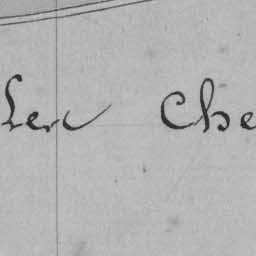 len Che